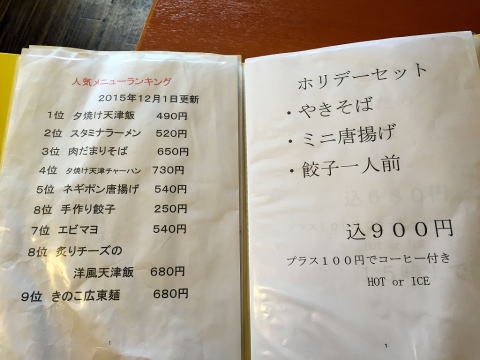 人気メニューランキング
2015年12月1日更新
1位 夕焼け天津飯 490円
2位 スタミナラーメン 520円
3位 肉だまりそば 650円
4位 夕焼け天津チャーハン 730円
5位 ネギポン唐揚げ 540円
8位 手作り餃子 250円
7位 エビマヨ 540円
8位 炙りチーズの
洋風天津飯 680円
9位 きのこ広東麺 680円
1
ホリデーセット
・やきそば
・ミニ唐揚げ
・餃子一人前
込900円
プラス100円でコーヒー付き
HOT or ICE
1